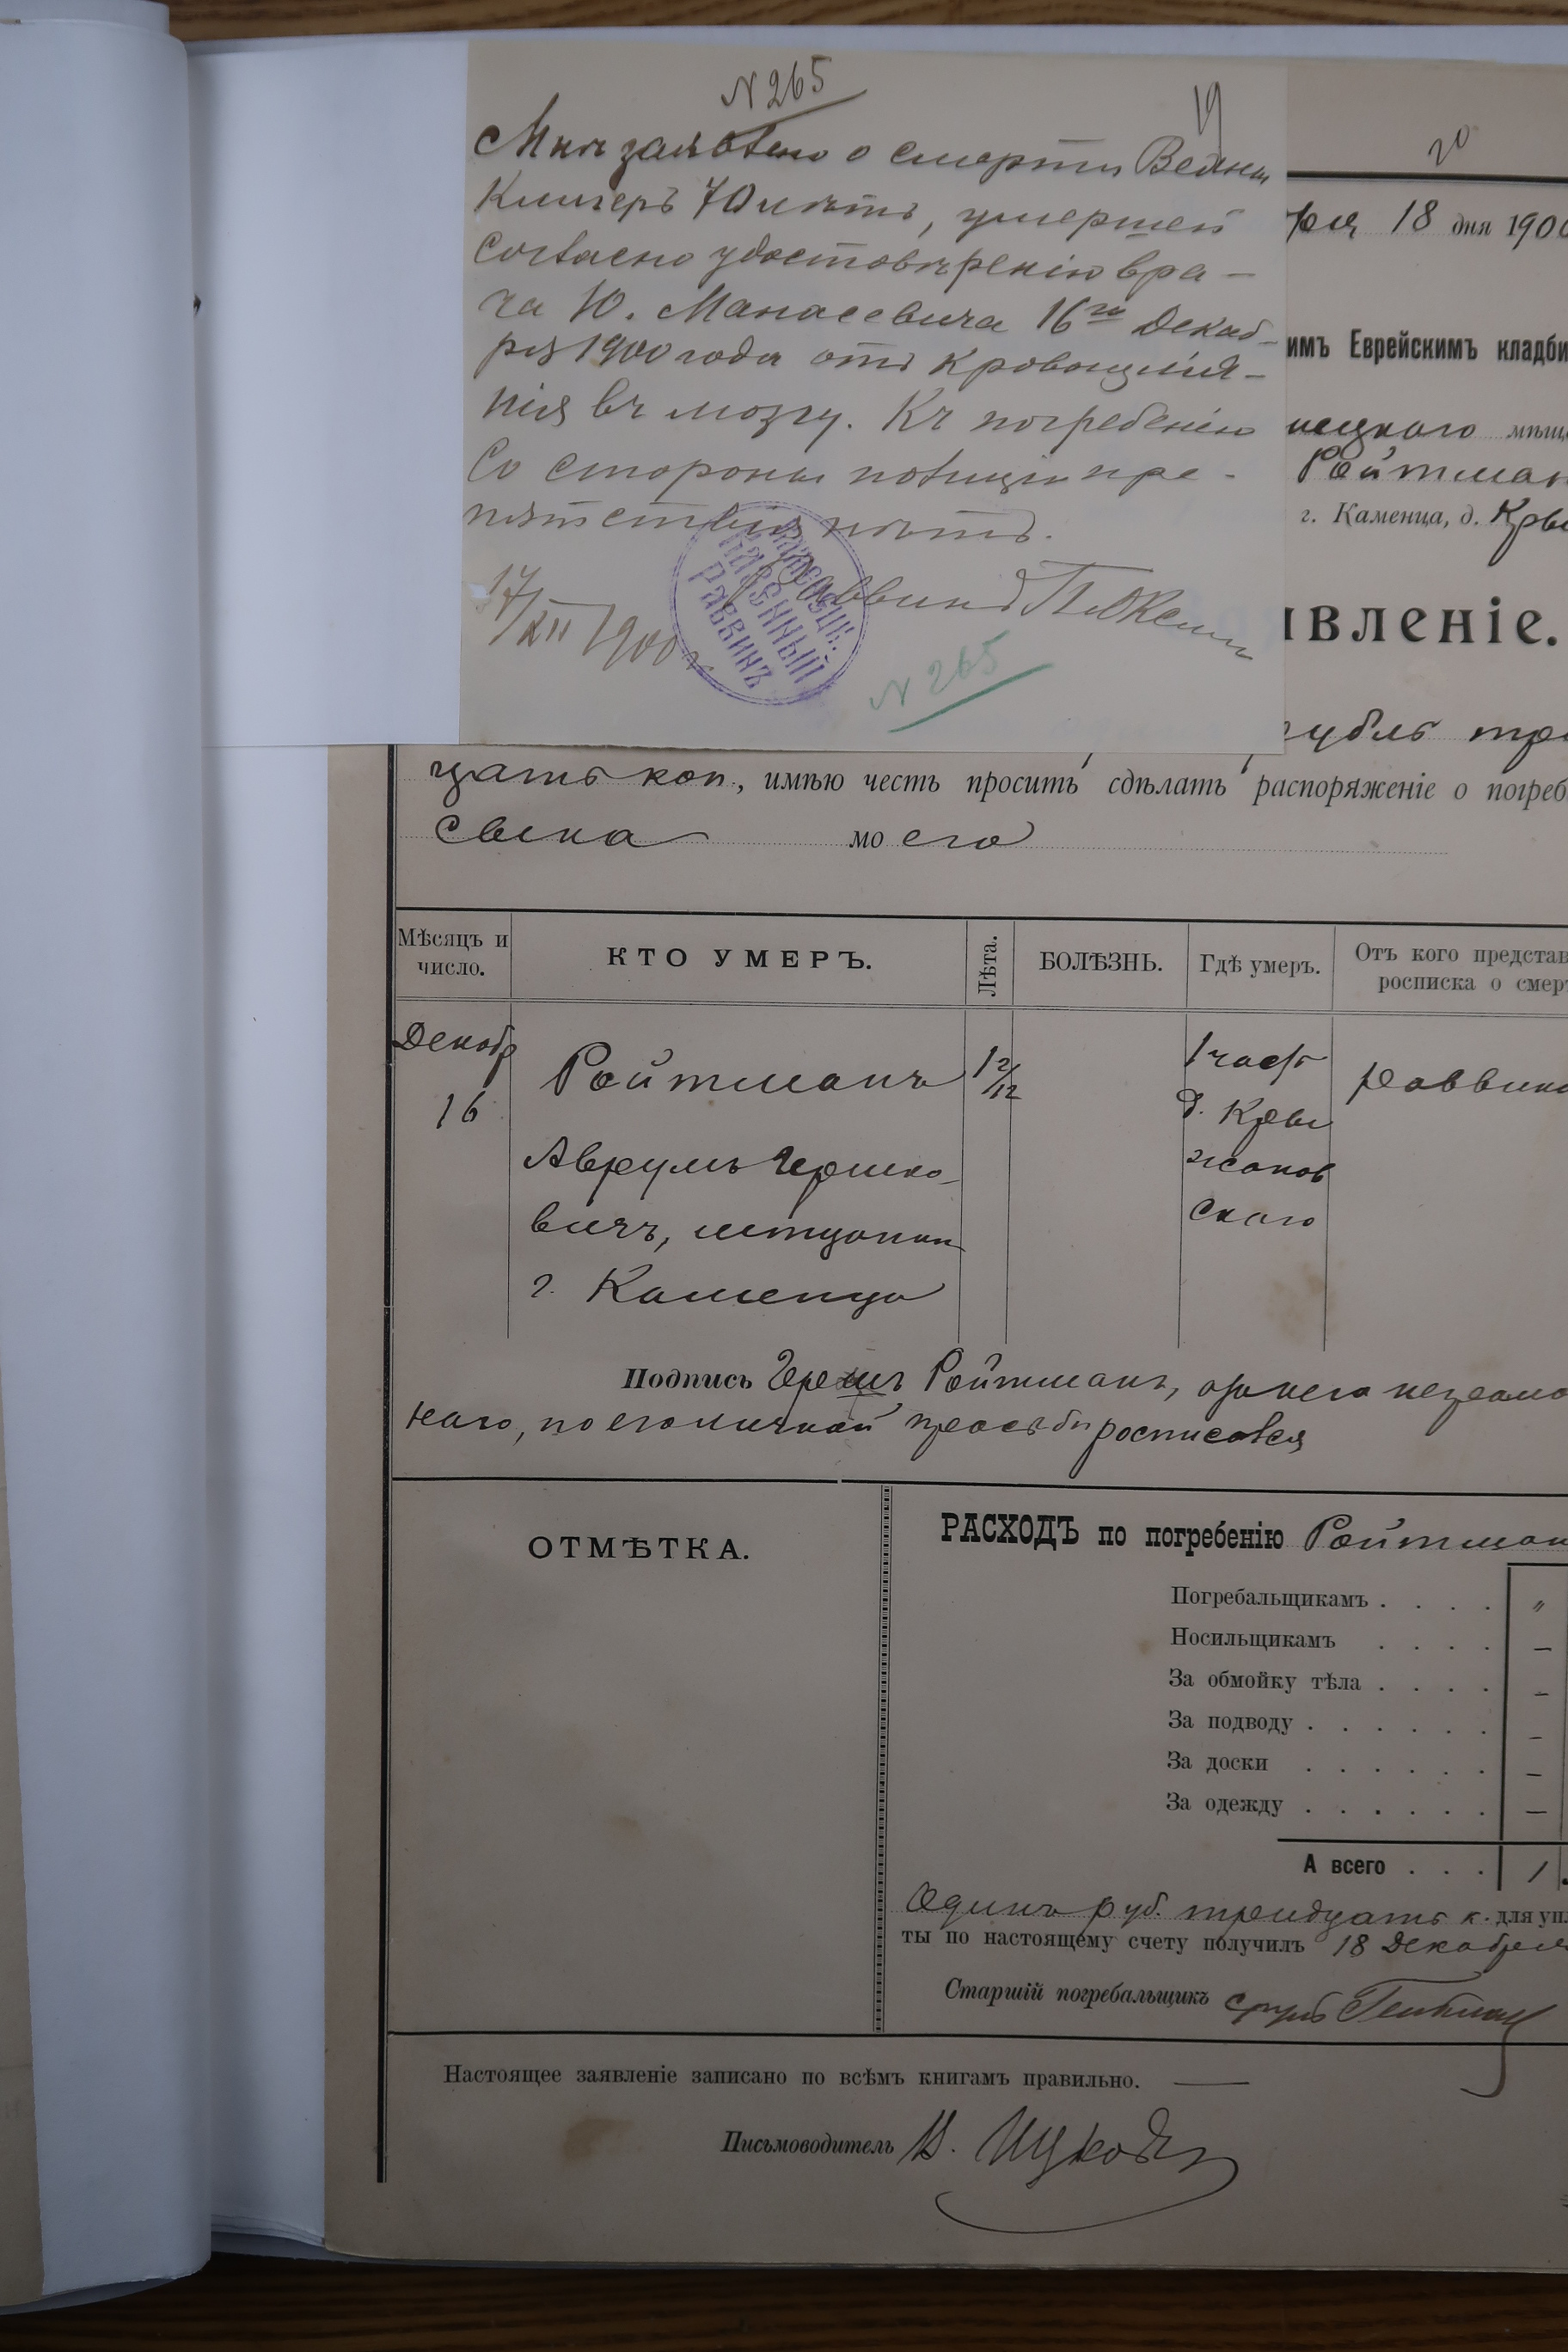 N 265
19
Мнѣ заявлено о смерти Вейны
Клигеръ 70 лѣтъ, умершей
согласно удостовѣренію вра-
ча Ю. Манасевича 16го Декаб-
ря 1900 года отъ кровоизлія-
нія въ мозгу. Къ погребенію
со стороны полиціи пре-
пятствія нѣтъ.
Раввинъ
17/XII 1900 г.
КАЗЕННЫЙ
РАВВИНЪ
N 265
20
ря 18 дня 1900
имъ Еврейскимъ кладби
нецкого мѣщ
Ройтман
г. Каменца, д. Кры
явленіе.
рубль три
цать коп., имѣю честь просить сдѣлать распоряженіе о погреб
сына моего
Мѣсяцъ и число.
КТО УМЕРЪ.
Лѣта.
БОЛѢЗНЬ.
Гдѣ умеръ.
Отъ кого представ
росписка о смер
Декабр
16
Ройтманъ
Аврумъ Гершко-
вичъ, мѣщанин
г. Каменца
1 2/12
1 част
д. Кры
жанов
скаго
раввина
Подпись Гершъ Ройтманъ, а за него неграмот
наго, по его личной просьбѣ росписался
ОТМѢТКА.
РАСХОДЪ по погребенію Ройтман
Погребальщикамъ . . . . "
Носильщикамъ . . . . —
За обмойку тѣла . . . . —
За подводу . . . . . —
За доски . . . . . —
За одежду . . . . . —
А всего . . . 1
Одинъ руб. тридцать к. для упл
ты по настоящему счету получилъ 18 Декабря
Старшій погребальщикъ
Настоящее заявленіе записано по всѣмъ книгамъ правильно. —
Письмоводитель И. Ицкович